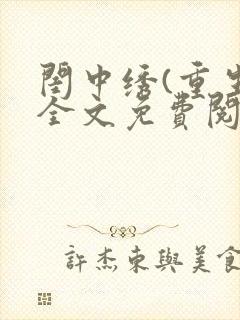 閨中绣(重生
全文免費閱
許杰東與美食